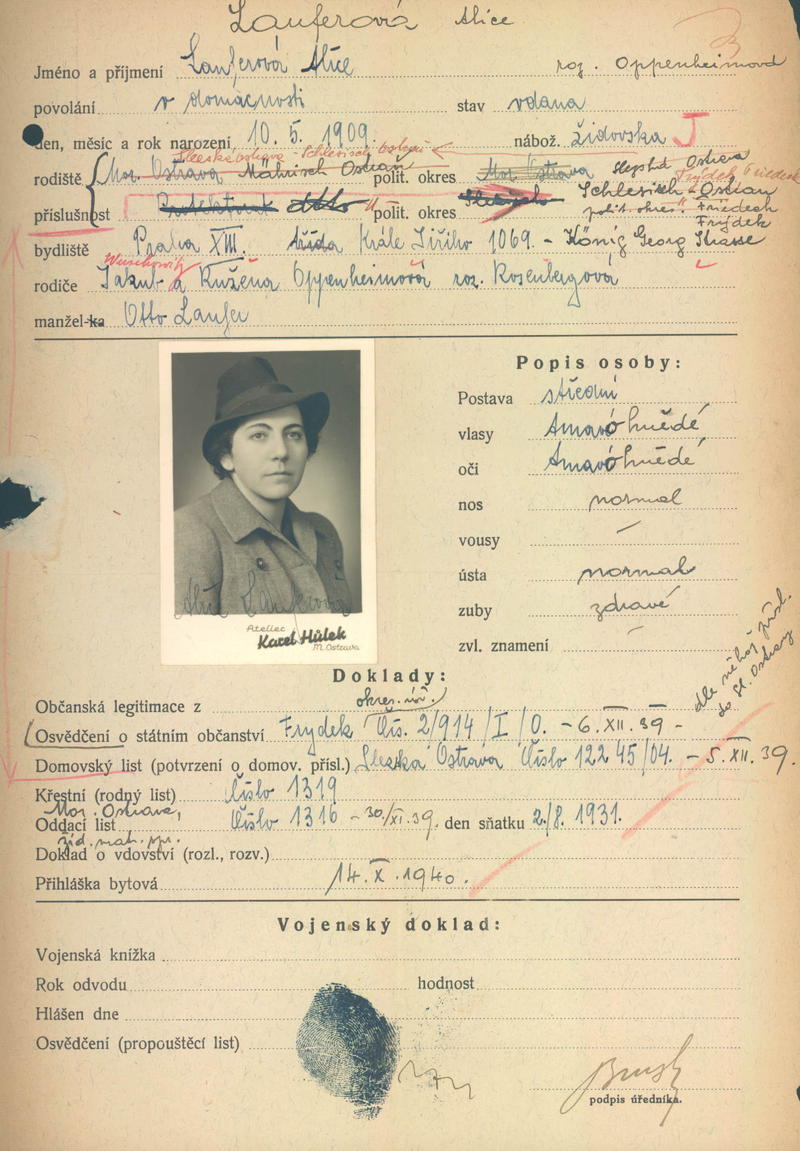 Lauferová Alice
Jméno a příjmení Lauferová Alice roz. Oppenheimová
povolání v domácnosti stav vdana
den, měsíc a rok narození 10. 5. 1909. nábož. židovska J
Slezská Ostrava - Schlesisch Ostrau Slezská Ostrava
rodiště Mor. Ostrava Mährisch Ostrau polit. okres Mor. Ostrava Frýdek Friedek
příslušnost Protektorat dtto polit. okres Schlesisch-Ostrau
polit. okres: Friedeck
Frýdek
bydliště Praha XIII. třída Krále Jiřího 1069. - König Georg Strasse
rodiče Jakub a Ružena Oppenheimová roz. Rosenbergová
manžel-ka Otto Laufer
Popis osoby:
Postava střední
vlasy tmavóhnědé
oči tmavóhnědé
nos normal
vousy —
ústa normal
zuby zdravé
zvl. znamení —
Alice Lauferová
Atelier
Karel Hůlek
M. Ostrava
Doklady:
Občanská legitimace z
okres. úř.
Osvědčení o státním občanství Frydek čís. 2/914/I/O. - 6. XII. 39 -
Domovský list (potvrzení o domov. přísl.) Slezska Ostrava číslo 12245/04. - 5. XII. 39.
Křestní (rodný list) číslo 1319
Mor. Ostrava,
Oddací list číslo 1316 - 30/XI. 39. den sňatku 2./8. 1931.
žid. nab.
Doklad o vdovství (rozl., rozv.)
Přihláška bytová 14. X. 1940.
Vojenský doklad:
Vojenská knížka
Rok odvodu hodnost
Hlášen dne
Osvědčení (propouštěcí list)
podpis úředníka.